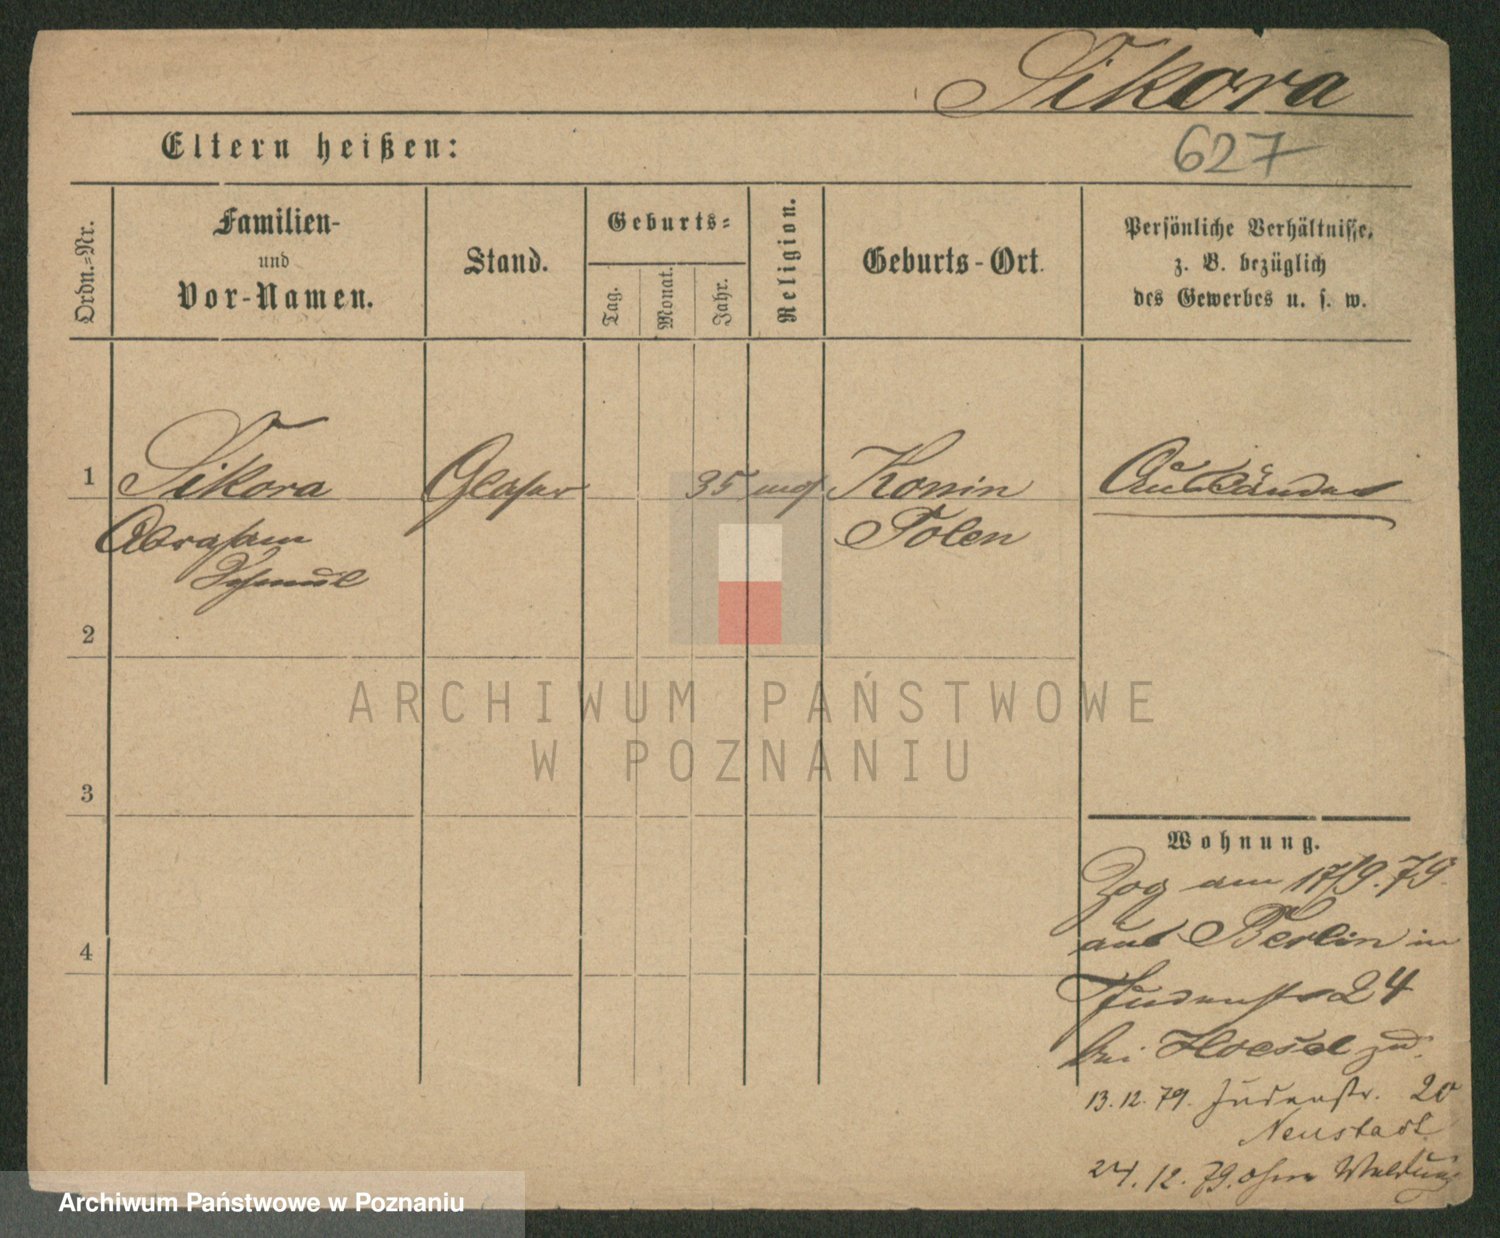 Sikora
627
Eltern heißen:
Ordn.-Nr.
Familien-
und
Vor-Namen.
Stand.
Geburts-
Tag.
Monat.
Jahr.
Religion.
Geburts-Ort.
Persönliche Verhältnisse,
z. B. bezüglich
des Gewerbes u. s. w.
1
Sikora
Glaser
35
mos
Konin
Ausländer
Abraham
Polen
Schmul
2
ARCHIWUM PAŃSTWOWE
W POZNANIU
3
Wohnung.
Zog am 17/9. 79.
aus Berlin in
Judenstr 24
4
bei Hoesel zu.
13. 12. 79. Judenstr. 20
Neustadt
24. 12. 79. ohne Meldung
Archiwum Państwowe w Poznaniu